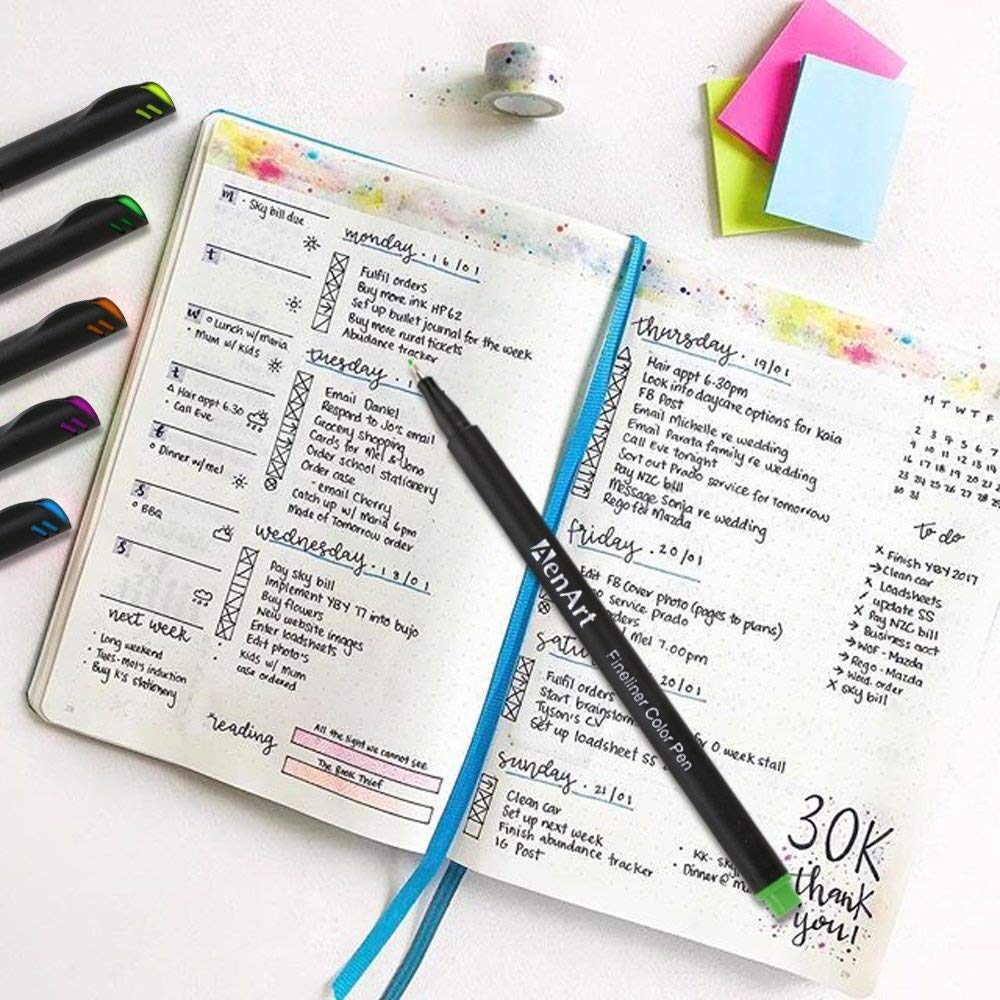 m • Sky bill due
t
w o Lunch w/ maria
• Mum w/ kids
t
△ Hair appt 6.30
• Call Eve
f
o Dinner w/ mel
s
o BBQ
s
next week
• Long weekend
• Tues-Mol's induction
• Buy K's stationery
monday • 16/01
Fulfil orders
Buy more ink HP62
Set up bullet journal for the week
Buy more rural tickets
Abudance tracker
tuesday •
Email Daniel
Respond to Jo's email
Grocery shopping
Cards for Mel & Jono
Order school stationery
Order case
- email Cherry
Catch up w/ Maria 6pm
Made of Tomorrow order
wednesday • 18/01
Pay sky bill
Implement YBY 17 into bujo
Buy flowers
New website images
Enter loadsheets
Edit photo's
• Kids w/ Mum
• case ordered
reading
All the light we cannot see
The Book Thief
thursday • 19/01
Hair appt 6-30pm
Look into daycare options for Kaia
FB Post
Email Michelle re wedding
Email Parata family re wedding
Call Eve tonight
Sort out Prado service for tomorrow
Pay NZC bill
Message Sonja re wedding
Rego for Mazda
friday • 20/01
Edit FB Cover photo (pages to plans)
Service Prado
Mel 7.00pm
20/01
Fulfil orders
Start brainstorm
Tyson's CV
Set up loadsheet SS
0 week stall
sunday • 21/01
Clean car
Set up next week
Finish abundance tracker
IG Post
• Dinner @
M T W T F
2 3 4 5 6 7
9 10 11 12 13 14
16 17 18 19 20 21
23 24 25 26 27 28
30 31
to do
x Finish YBY 2017
→ Clean car
x Loadsheets
/ update SS
x Pay NZC bill
→ Business acct
→ WOF - Mazda
→ Rego - Mazda
→ Word. order
x Sky bill
30K
thank
you!
AenArt Fineliner Color Pen